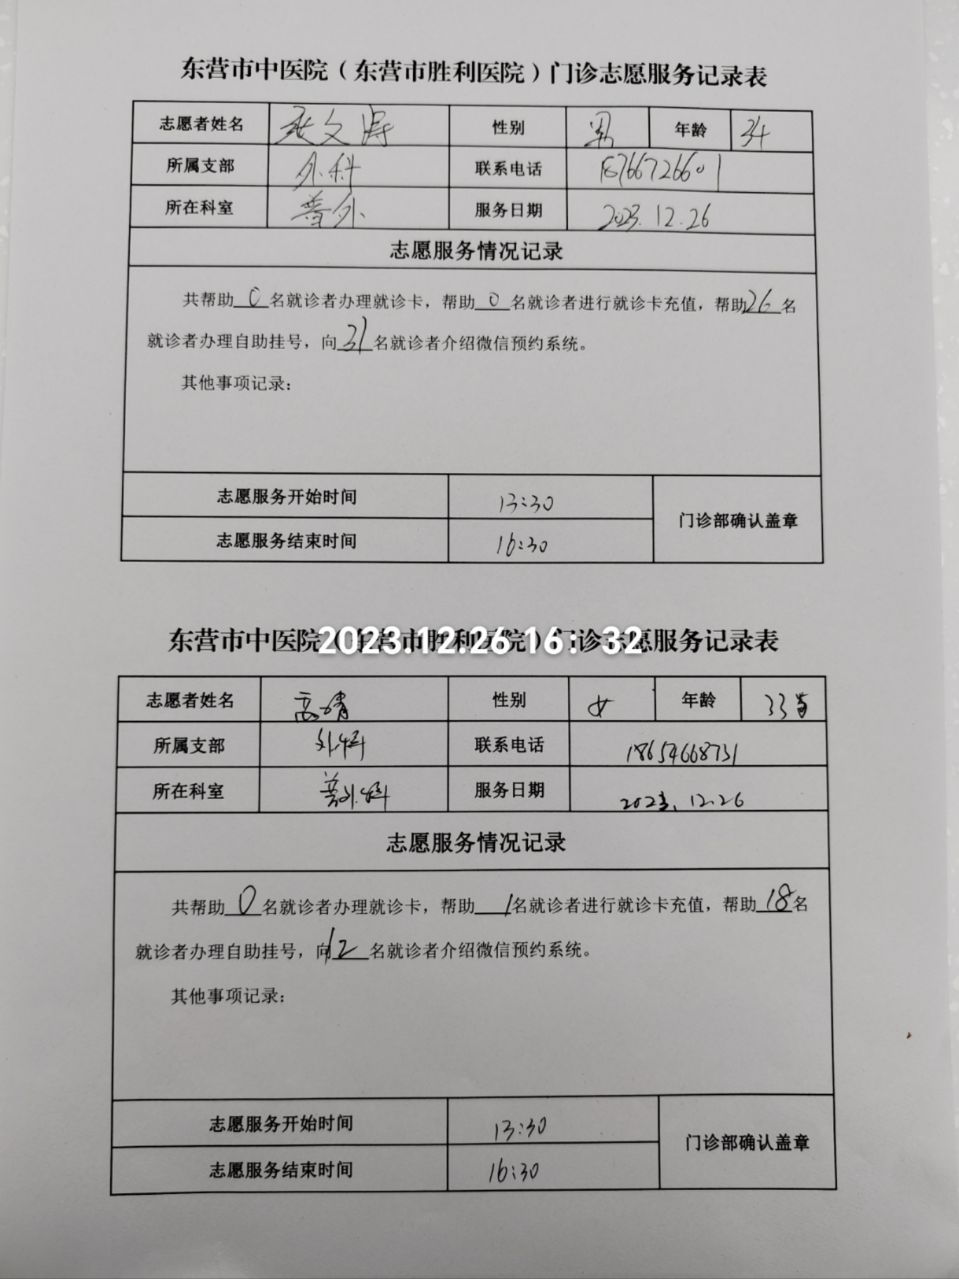 东营市中医院（东营市胜利医院）门诊志愿服务记录表
志愿者姓名 张文涛 性别 男 年龄 34
所属支部 外科 联系电话 15766726601
所在科室 普外 服务日期 2023.12.26
志愿服务情况记录
共帮助 0 名就诊者办理就诊卡，帮助 0 名就诊者进行就诊卡充值，帮助 26 名
就诊者办理自助挂号，向 31 名就诊者介绍微信预约系统。
其他事项记录：
志愿服务开始时间 13:30
门诊部确认盖章
志愿服务结束时间 16:30
东营市中医院（东营市胜利医院）门诊志愿服务记录表
2023.12.26 16：32
志愿者姓名 高婧 性别 女 年龄 33岁
所属支部 外科 联系电话 18654668731
所在科室 普外科 服务日期 2023.12.26
志愿服务情况记录
共帮助 0 名就诊者办理就诊卡，帮助 1 名就诊者进行就诊卡充值，帮助 18 名
就诊者办理自助挂号，向 12 名就诊者介绍微信预约系统。
其他事项记录：
志愿服务开始时间 13:30
门诊部确认盖章
志愿服务结束时间 16:30